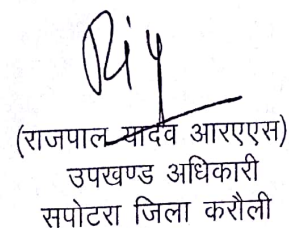 (राजपाल यादव आरएएस)
उपखण्ड अधिकारी
सपोटरा जिला करौली